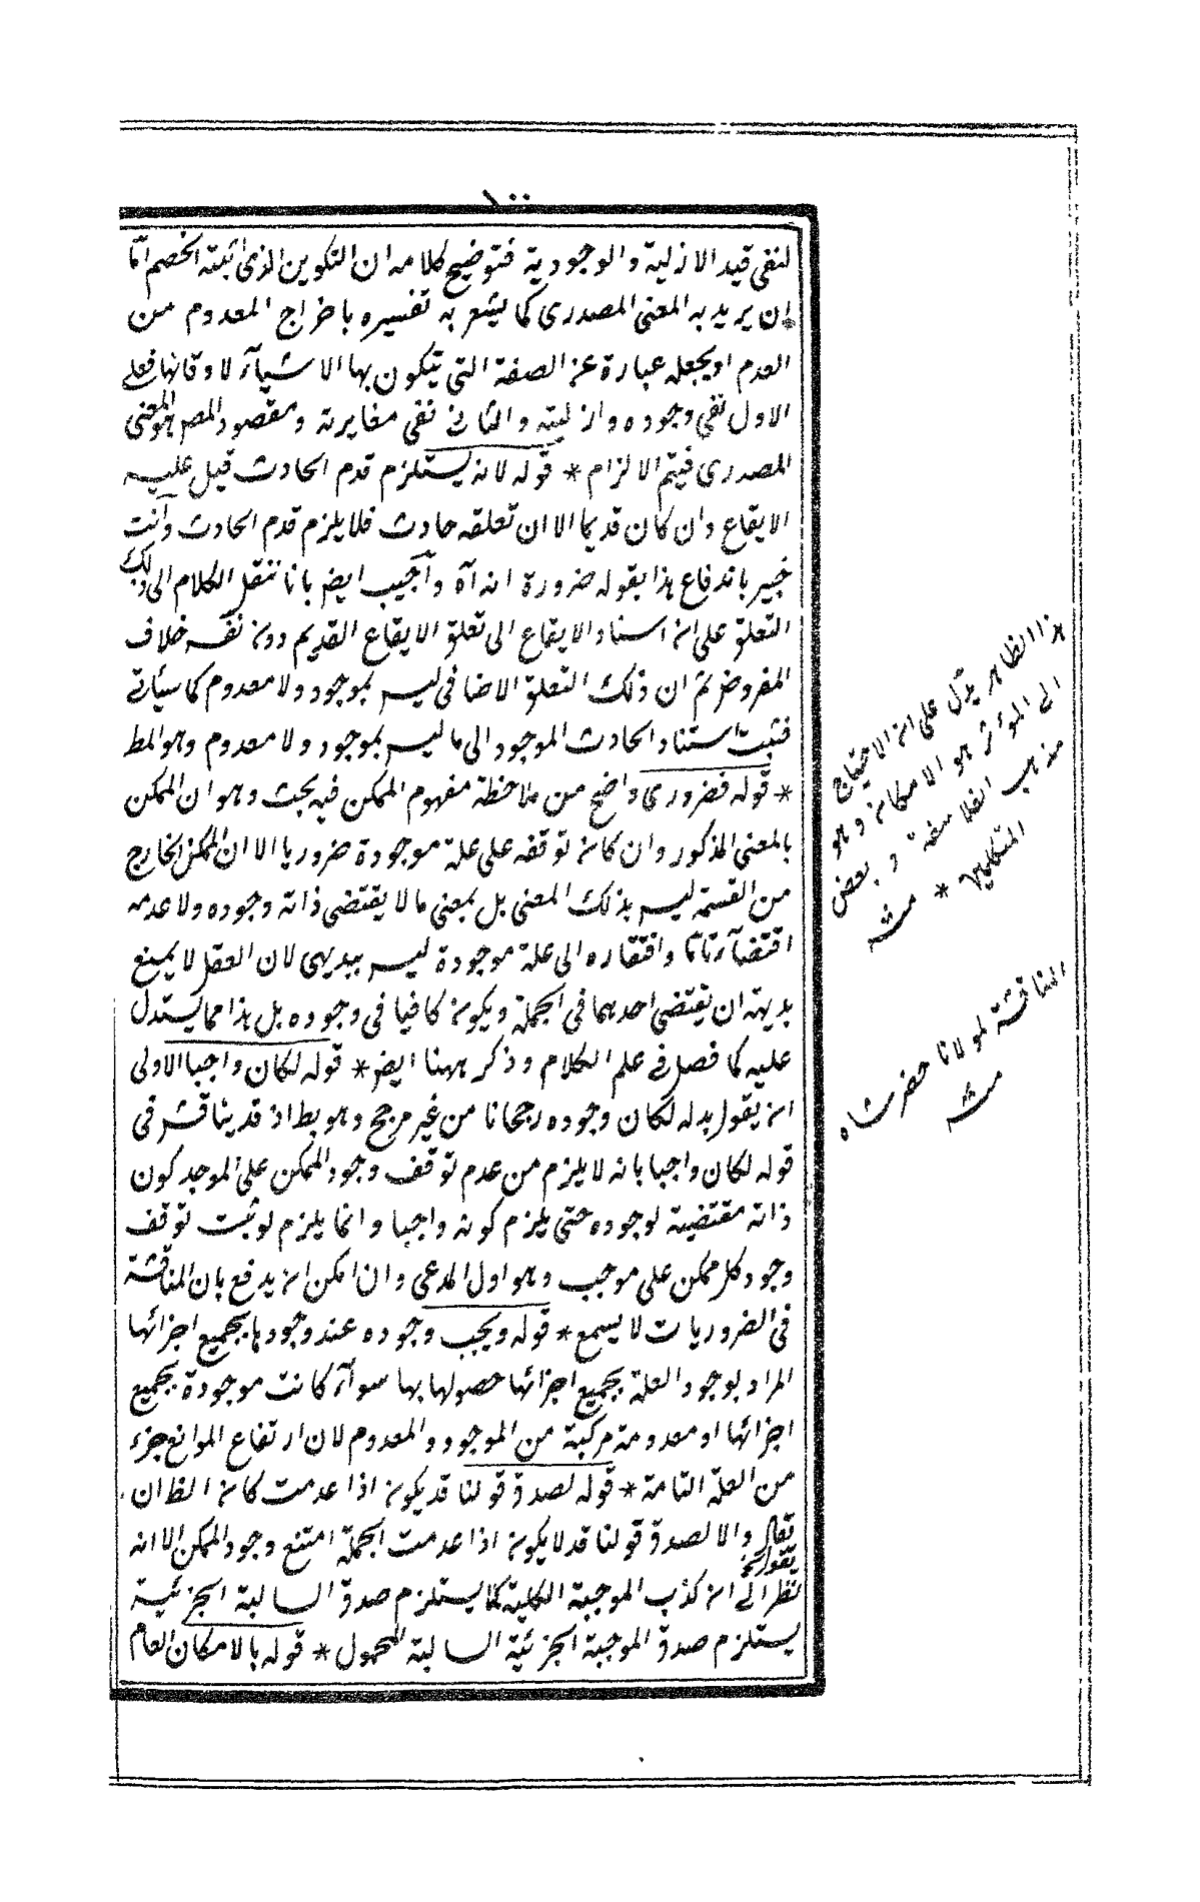 ١٠٠
لنفى قيد الازلية والوجودية فتوضيح كلامه ان التكوين الذى اثبته الخصم امّا
ان يريد به المعنى المصدرى كما يشعر به تفسيره باخراج المعدوم من
العدم او يجعله عبارة عن الصفة التى يتكون بها الاشيآء لاوقاتها فعلى
الاول نفى وجوده وازليته والثانى نفى مغايرته ومقصود المص هو المعنى
المصدرى فيتم الالزام * قوله لانه يستلزم قدم الحادث قيل عليه
الايقاع وان كان قديما الا ان تعلقه حادث فلا يلزم قدم الحادث وانت
خبير باندفاع هذا بقوله ضرورة انه آه وأجيب ايض بانا ننقل الكلام الى ذلك
التعلق على ان اسناد الايقاع الى تعلق الايقاع القديم دون نفسه خلاف
المفروض ثم ان ذلك التعلق الاضافى ليس بموجود ولا معدوم كما سيأتى
فثبت استناد الحادث الموجود الى ما ليس بموجود ولا معدوم وهو المط
* قوله فضرورى واضح من ملاحظة مفهوم الممكن فيه بحث وهو ان الممكن
بالمعنى المذكور وان كان توقفه على علة موجودة ضروريا الا ان الممكن الخارج
من القسمة ليس بذلك المعنى بل بمعنى ما لا يقتضى ذاته وجوده ولا عدمه
اقتضآء تاما وافتقاره الى علة موجودة ليس ببديهى لان العقل لا يمنع
بديهة ان يقتضى احدهما فى الجملة ويكون كافيا فى وجوده بل هذا مما يستدل
عليه كما فصل فى علم الكلام وذكر ههنا ايض * قوله لكان واجبا الاولى
ان يقول بدله لكان وجوده رجحانا من غير مرجح وهو بط اذ قد يناقش فى
قوله لكان واجبا بانه لا يلزم من عدم توقف وجود الممكن على الموجد كون
ذاته مقتضية لوجوده حتى يلزم كونه واجبا وانما يلزم لو ثبت توقف
وجود كل ممكن على موجب وهو اول المدعى وان امكن ان يدفع بان المناقشة
فى الضروريات لا يسمع * قوله ويجب وجوده عند وجودها بجميع اجزائها
المراد بوجود العلة بجميع اجزائها حصولها بها سوآء كانت موجودة بجميع
اجزائها او معدومة مركبة من الموجود والمعدوم لان ارتفاع الموانع جزء
من العلة التامة * قوله لصدق قولنا قد يكون اذا عدمت كان الظ ان
يقال والا لصدق قولنا قد لا يكون اذا عدمت الجملة امتنع وجود الممكن الا انه
نظر الى ان كذب الموجبة الكلية كما يستلزم صدق السالبة الجزئية
يستلزم صدق الموجبة الجزئية السالبة المحمول * قوله بالامكان العام
هذا الظاهر يدل على ان الاحتياج
الى المؤثر هو الامكان وهو
مذهب الفلاسفة وبعض
المتكلمين * منه
المناقشة لمولانا خضرشاه
منه